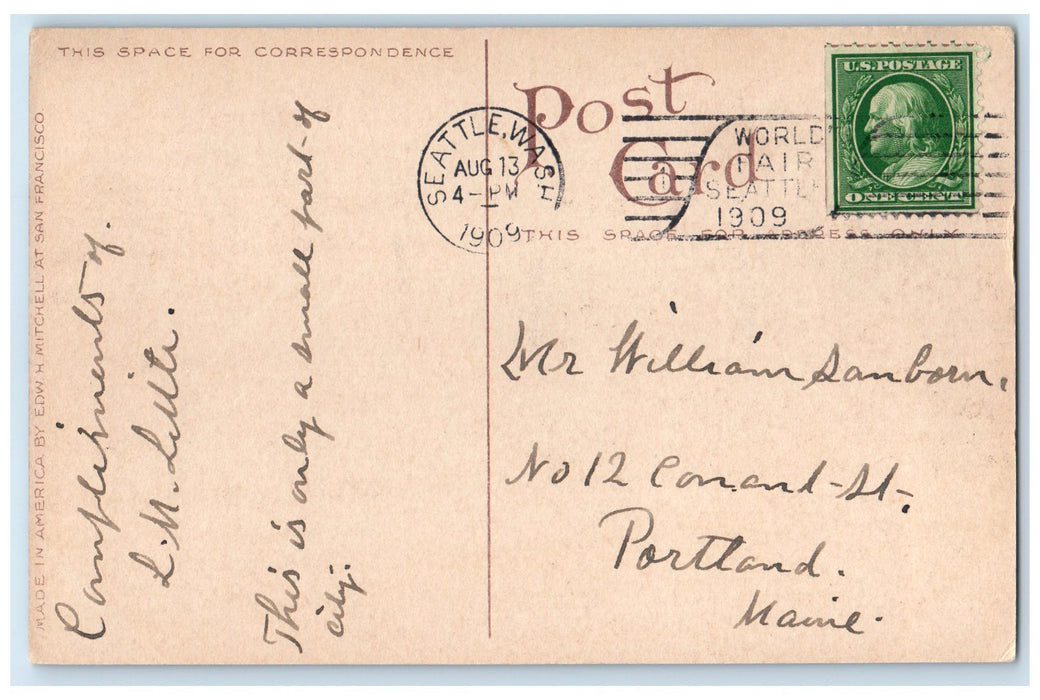 THIS SPACE FOR CORRESPONDENCE
MADE IN AMERICA BY EDW. H. MITCHELL AT SAN FRANCISCO.
Compliments of.
L. M.
This is only a small part of
city.
Post
Card
THIS SPACE FOR ADDRESS ONLY
SEATTLE, WASH
AUG 13
4-PM
1909
WORLD'
FAIR
SEATTLE
1909
U.S. POSTAGE
ONE CENT
Mr William Sanborn.
No 12 Conant St.
Portland.
Maine.